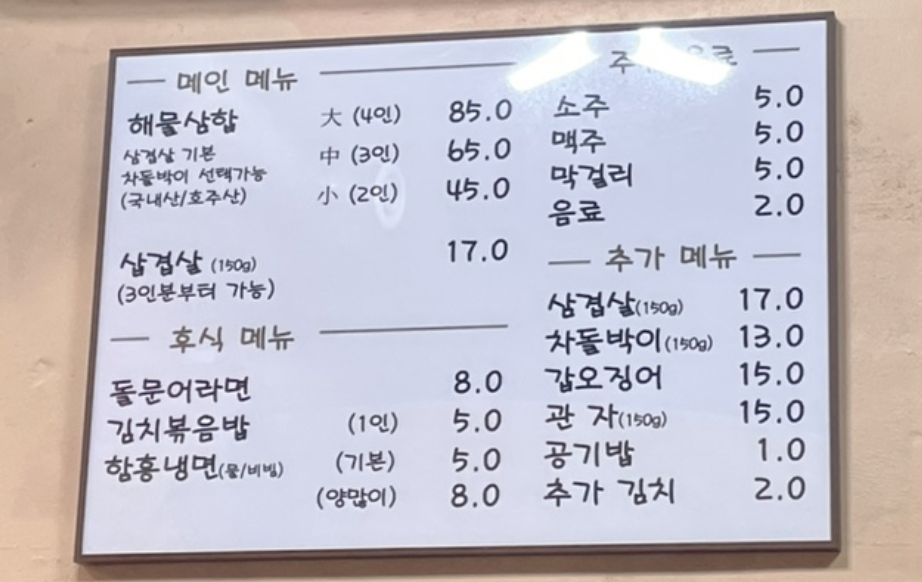 메인 메뉴
해물삼합 大 (4인) 85.0
삼겹살 기본 中 (3인) 65.0
차돌박이 선택가능
(국내산/호주산) 小 (2인) 45.0
삼겹살 (150g) 17.0
(3인분부터 가능)
후식 메뉴
돌문어라면 8.0
김치볶음밥 (1인) 5.0
함흥냉면(물/비빔) (기본) 5.0
(양많이) 8.0
소주 5.0
맥주 5.0
막걸리 5.0
음료 2.0
추가 메뉴
삼겹살(150g) 17.0
차돌박이(150g) 13.0
갑오징어 15.0
관 자(150g) 15.0
공기밥 1.0
추가 김치 2.0